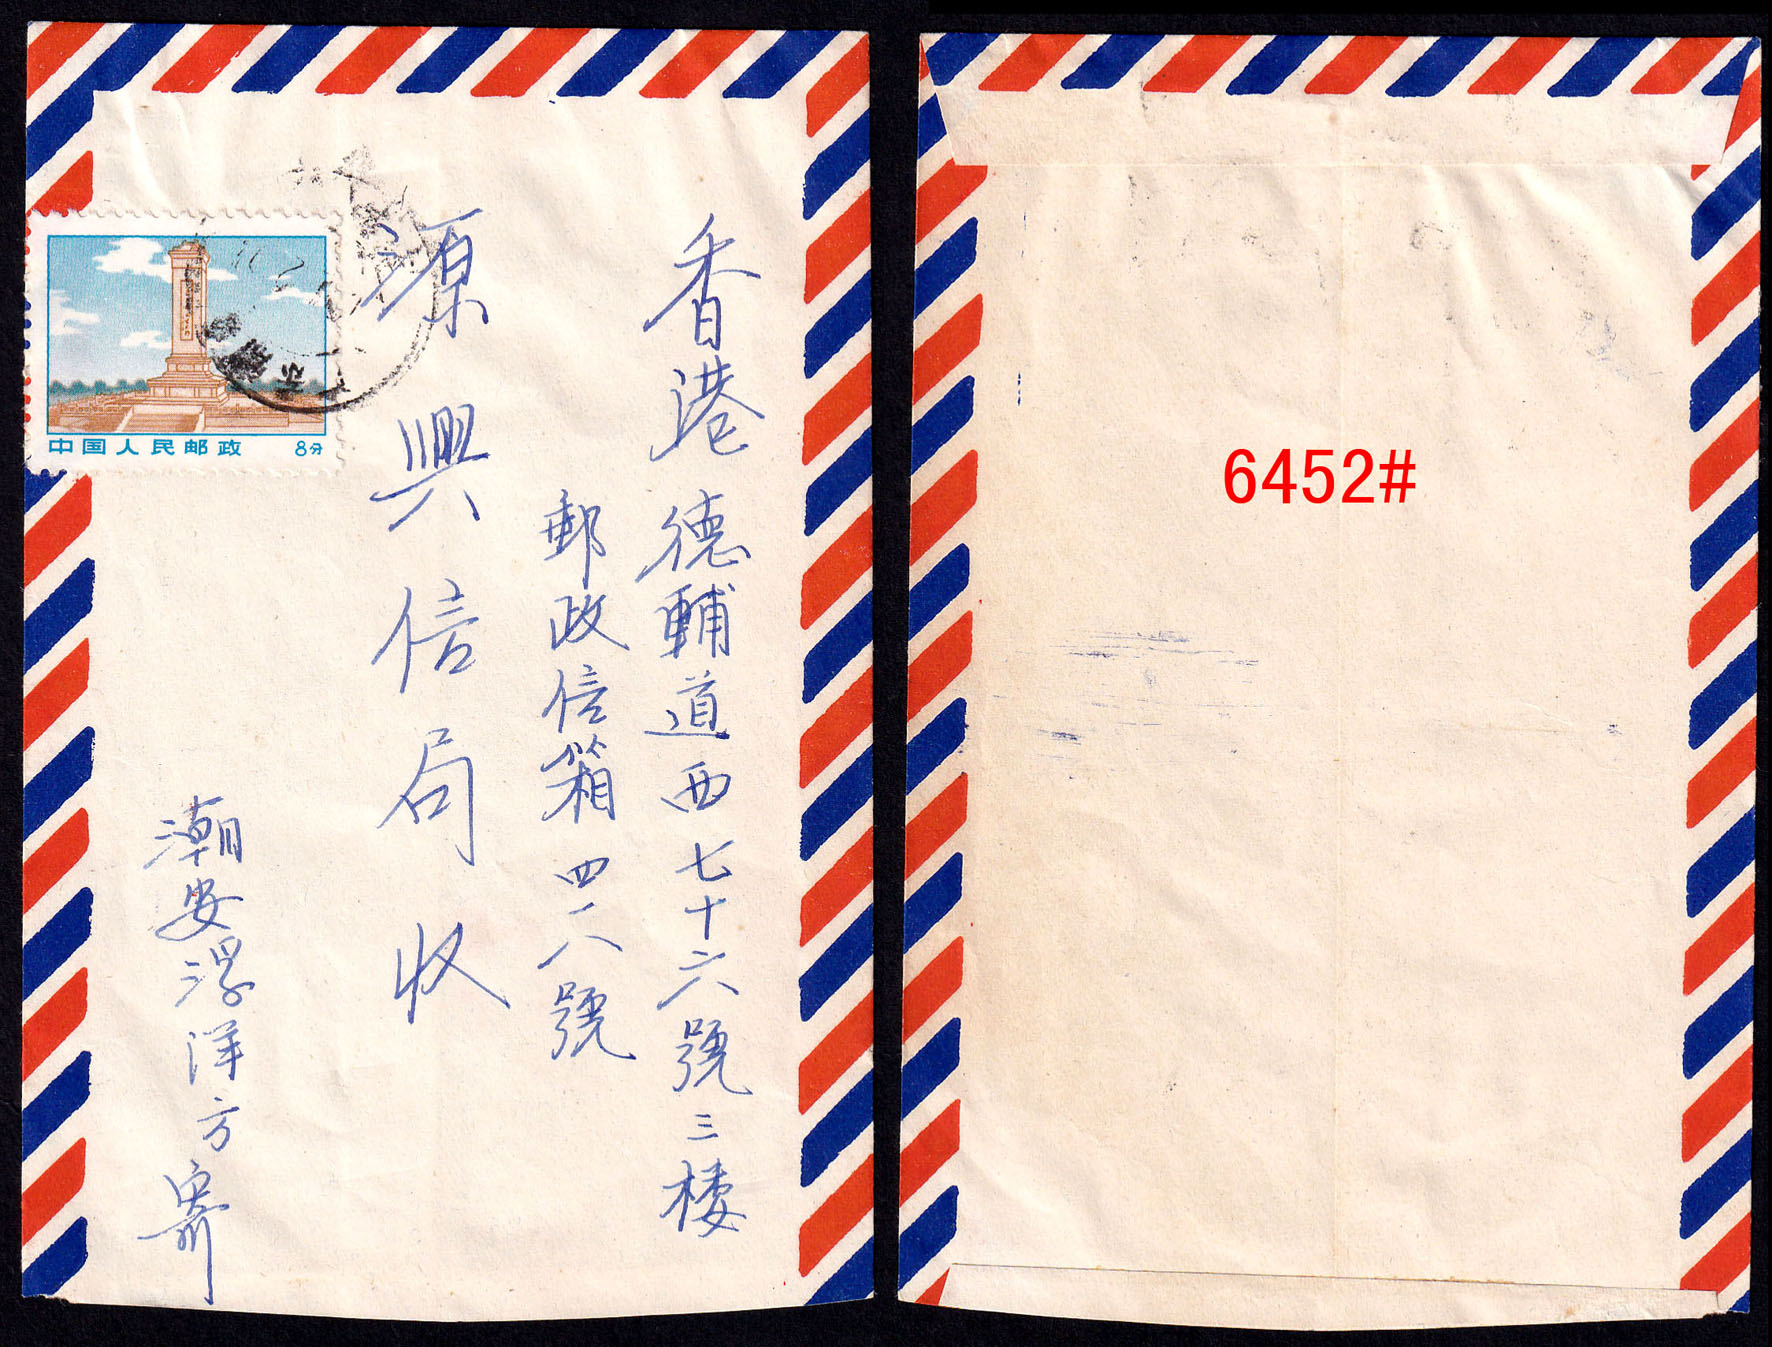 香港德輔道西七十六號三楼
郵政信箱四一八號
源興信局收
潮安浮洋方寄
中国人民邮政 8分
6452#